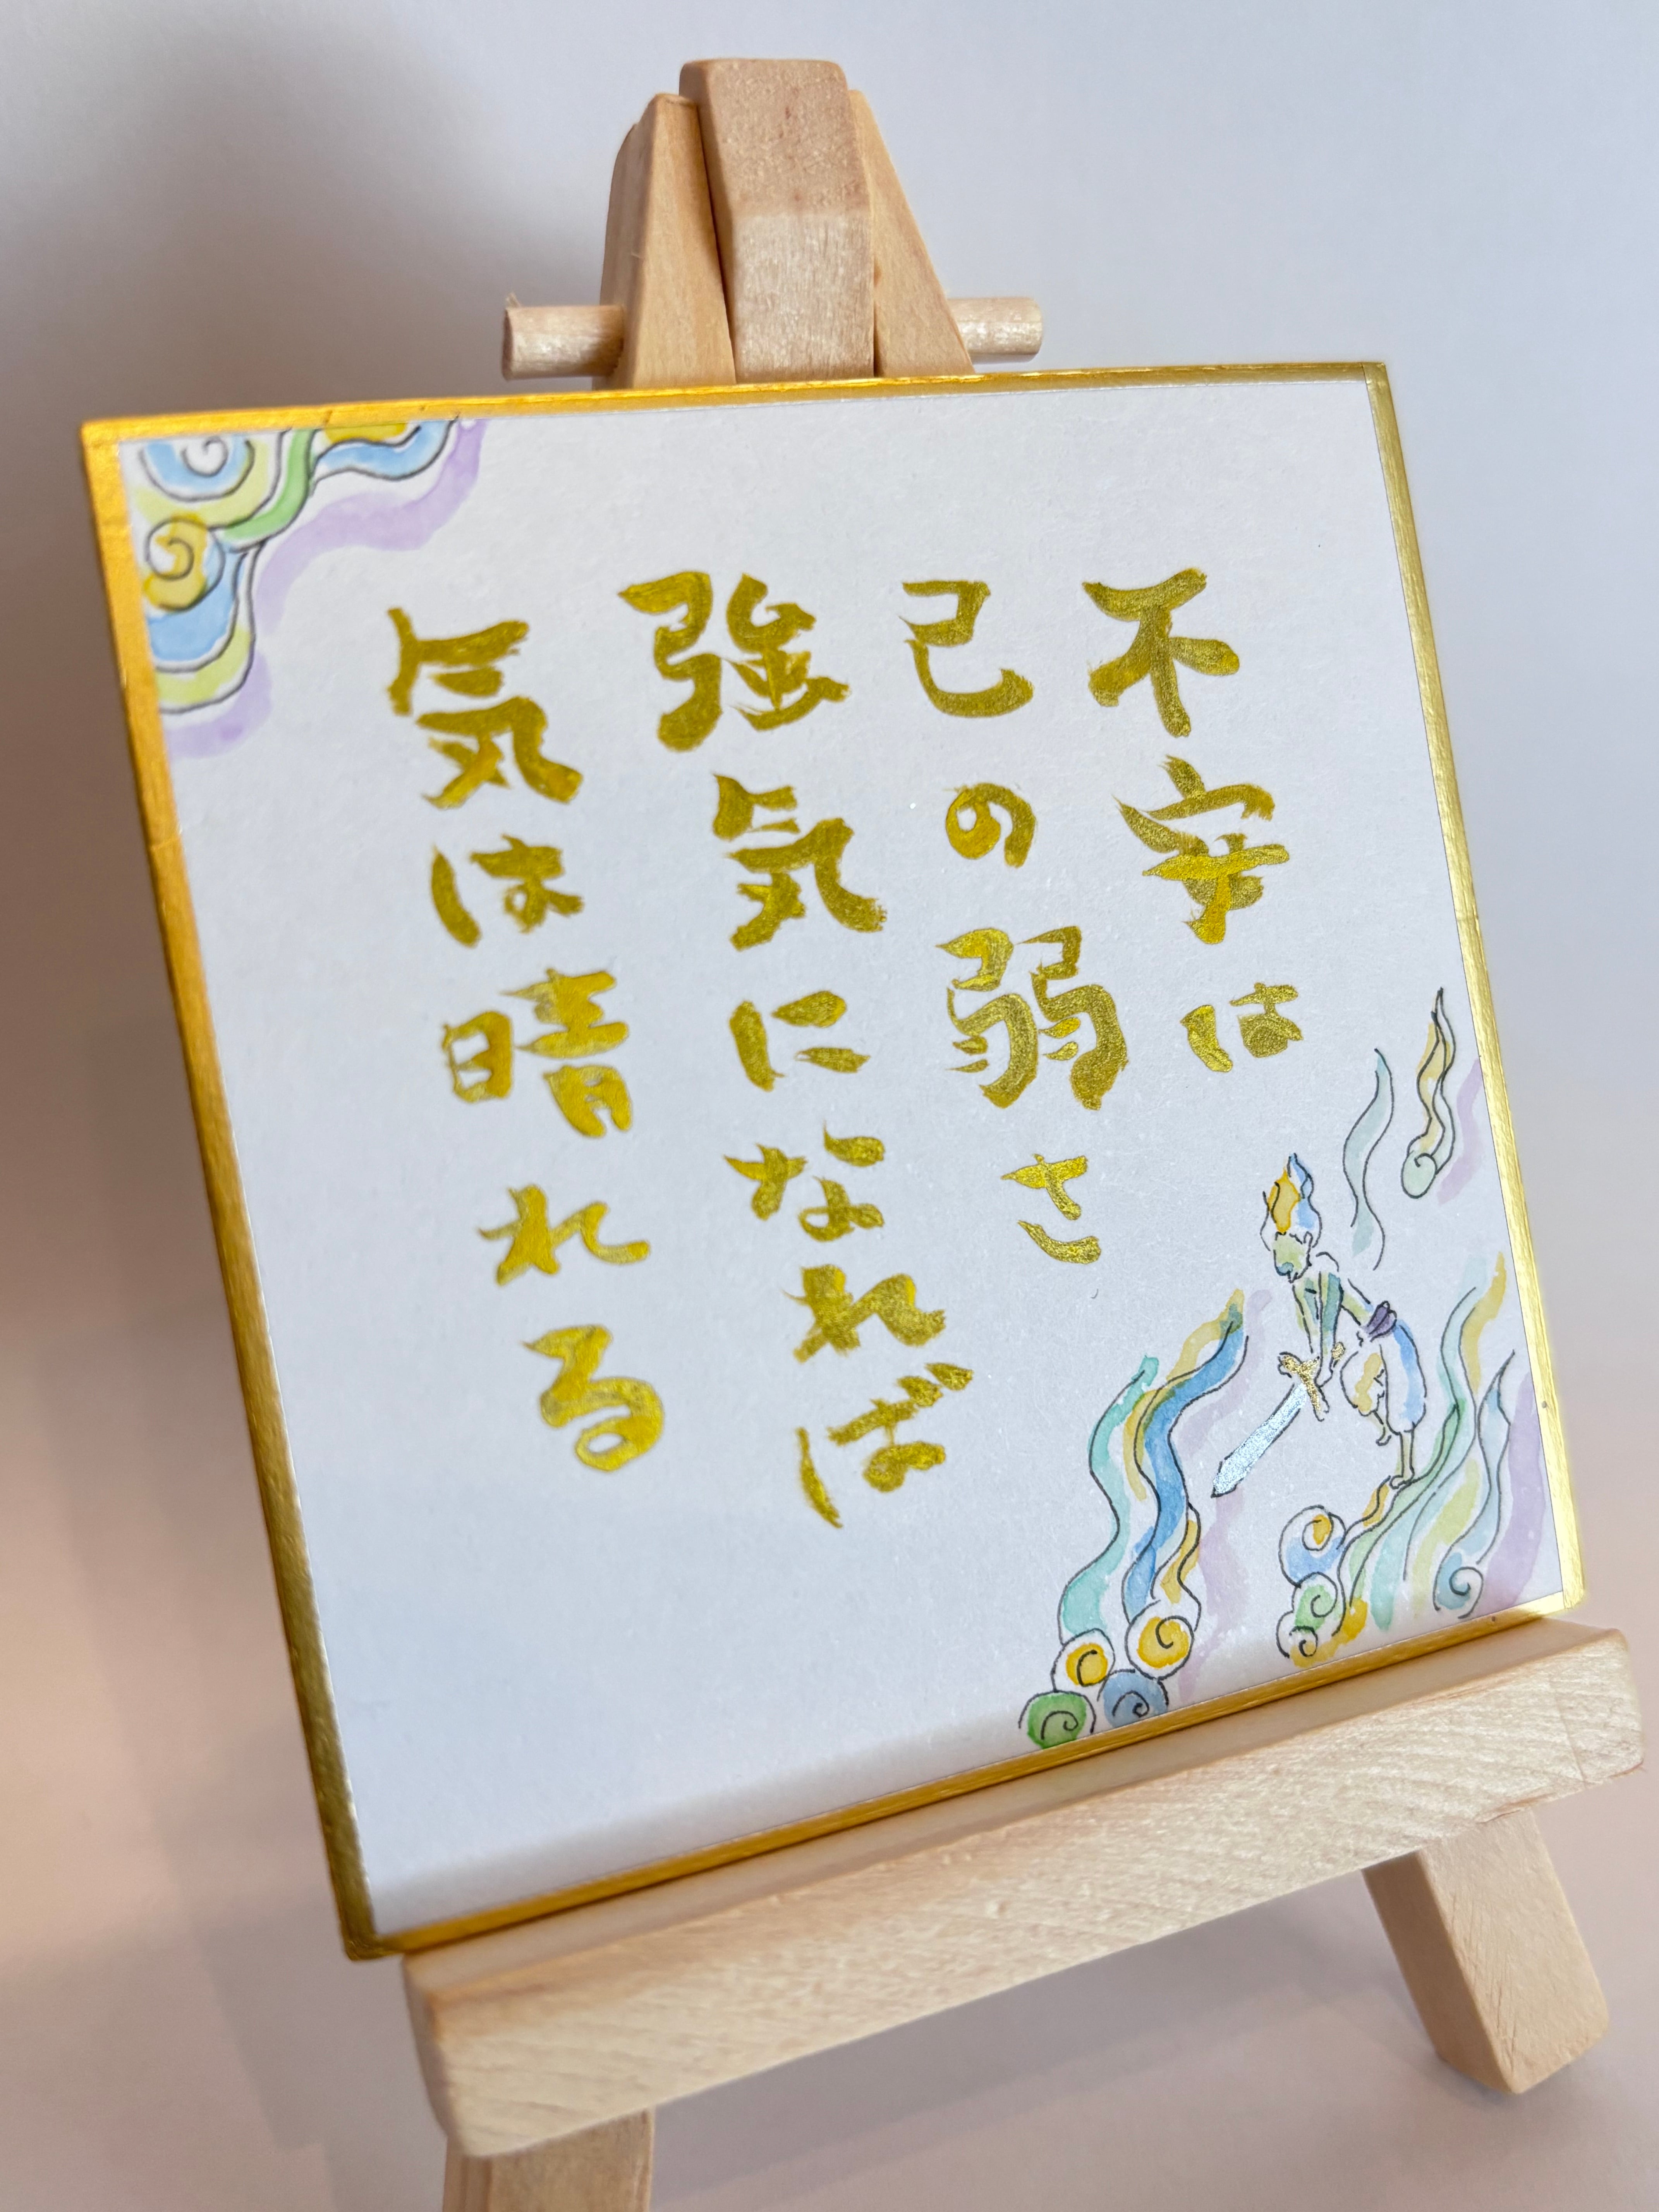 不安は
己の弱さ
強気になれば
気は晴れる